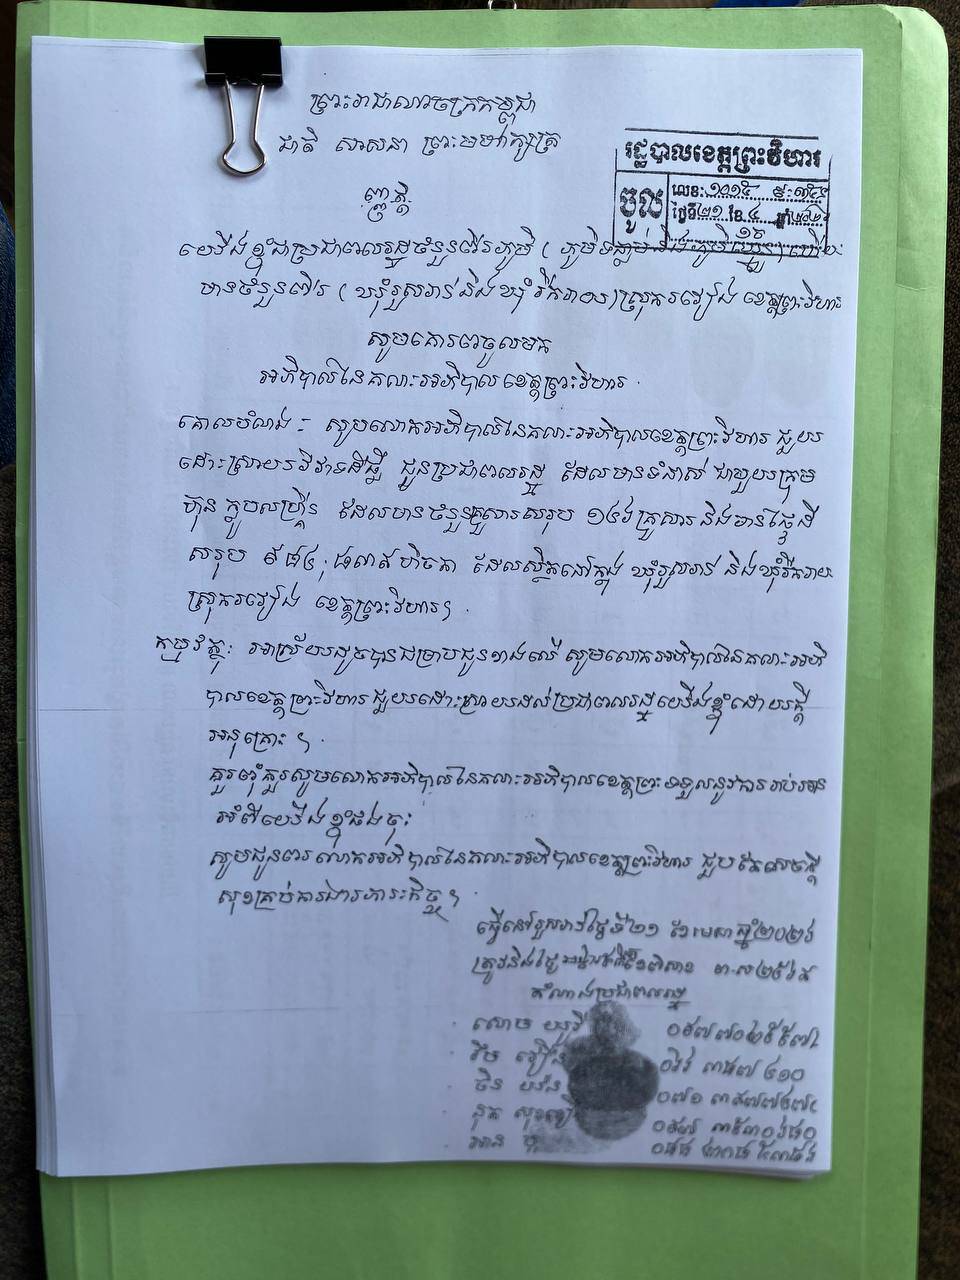 ព្រះរាជាណាចក្រកម្ពុជា
ជាតិ សាសនា ព្រះមហាក្សត្រ
រដ្ឋបាលខេត្តព្រះវិហារ
ចូល
លេខ: ១០១៥
ថ្ងៃទី២១ ខែ ៤ ឆ្នាំ
ញត្តិ
យើងខ្ញុំជាប្រជាពលរដ្ឋចំនួនពីរភូមិ ( ភូមិ និងភូមិ ) ហើយ
មានចំនួនពីរ ( ឃុំរួសរាន់ និងឃុំ រីករាយ ) ស្រុករវៀង ខេត្តព្រះវិហារ
សូមគោរពចូលមក
អភិបាលនៃគណៈអភិបាលខេត្តព្រះវិហារ
គោលបំណង : សូមលោកអភិបាលនៃគណៈអភិបាលខេត្តព្រះវិហារ ជួយ
ដោះស្រាយវិវាទដីធ្លី ជូនប្រជាពលរដ្ឋ ដែលមានទំនាស់ ជាមួយក្រុម
ហ៊ុន ដែលមានចំនួនគ្រួសារសរុប ១៤៦ គ្រួសារ និងមានផ្ទៃដី
សរុប ហិចតា ដែលស្ថិតនៅក្នុង ឃុំរួសរាន់ និងឃុំរីករាយ
ស្រុករវៀង ខេត្តព្រះវិហារ។
កម្មវត្ថុ: អាស្រ័យដូចបានជម្រាបជូនខាងលើ សូមលោកអភិបាលនៃគណៈអភិ
បាលខេត្តព្រះវិហារ ជួយដោះស្រាយដល់ប្រជាពលរដ្ឋយើងខ្ញុំដោយក្តី
អនុគ្រោះ ។
គួរពុំគួរសូមលោកអភិបាលនៃគណៈអភិបាលខេត្តព្រះ ទទួលនូវការរាប់អាន
អំពីយើងខ្ញុំផងចុះ
សូមជូនពរ លោកអភិបាលនៃគណៈអភិបាលខេត្តព្រះវិហារ ជួបតែសេចក្តី
សុខគ្រប់ការងារភារៈកិច្ច ។
ធ្វើនៅរួសរាន់ថ្ងៃទី២១ ខែមេសា ឆ្នាំ២០២៦
ត្រូវនឹងថ្ងៃ ខែពិសាខ ព.ស ២៥៦៩
តំណាងប្រជាពលរដ្ឋ
សោម
រឹម វឿន
ចិន
នុត
អាន